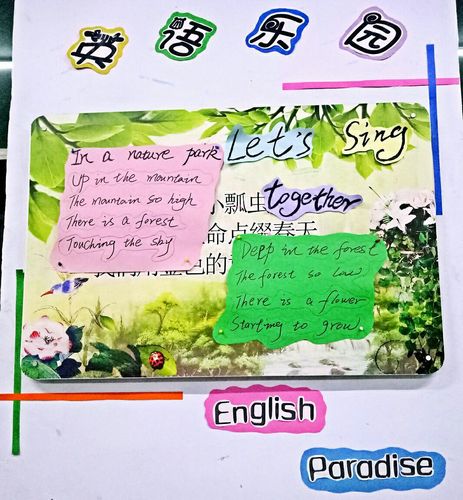 英语乐园
Let's Sing
together
In a nature park
Up in the mountain
The mountain so high
There is a forest
Touching the sky
小瓢虫
命点缀春天
色的
Depp in the forest
The forest so low
There is a flower
Starting to grow
English
Paradise